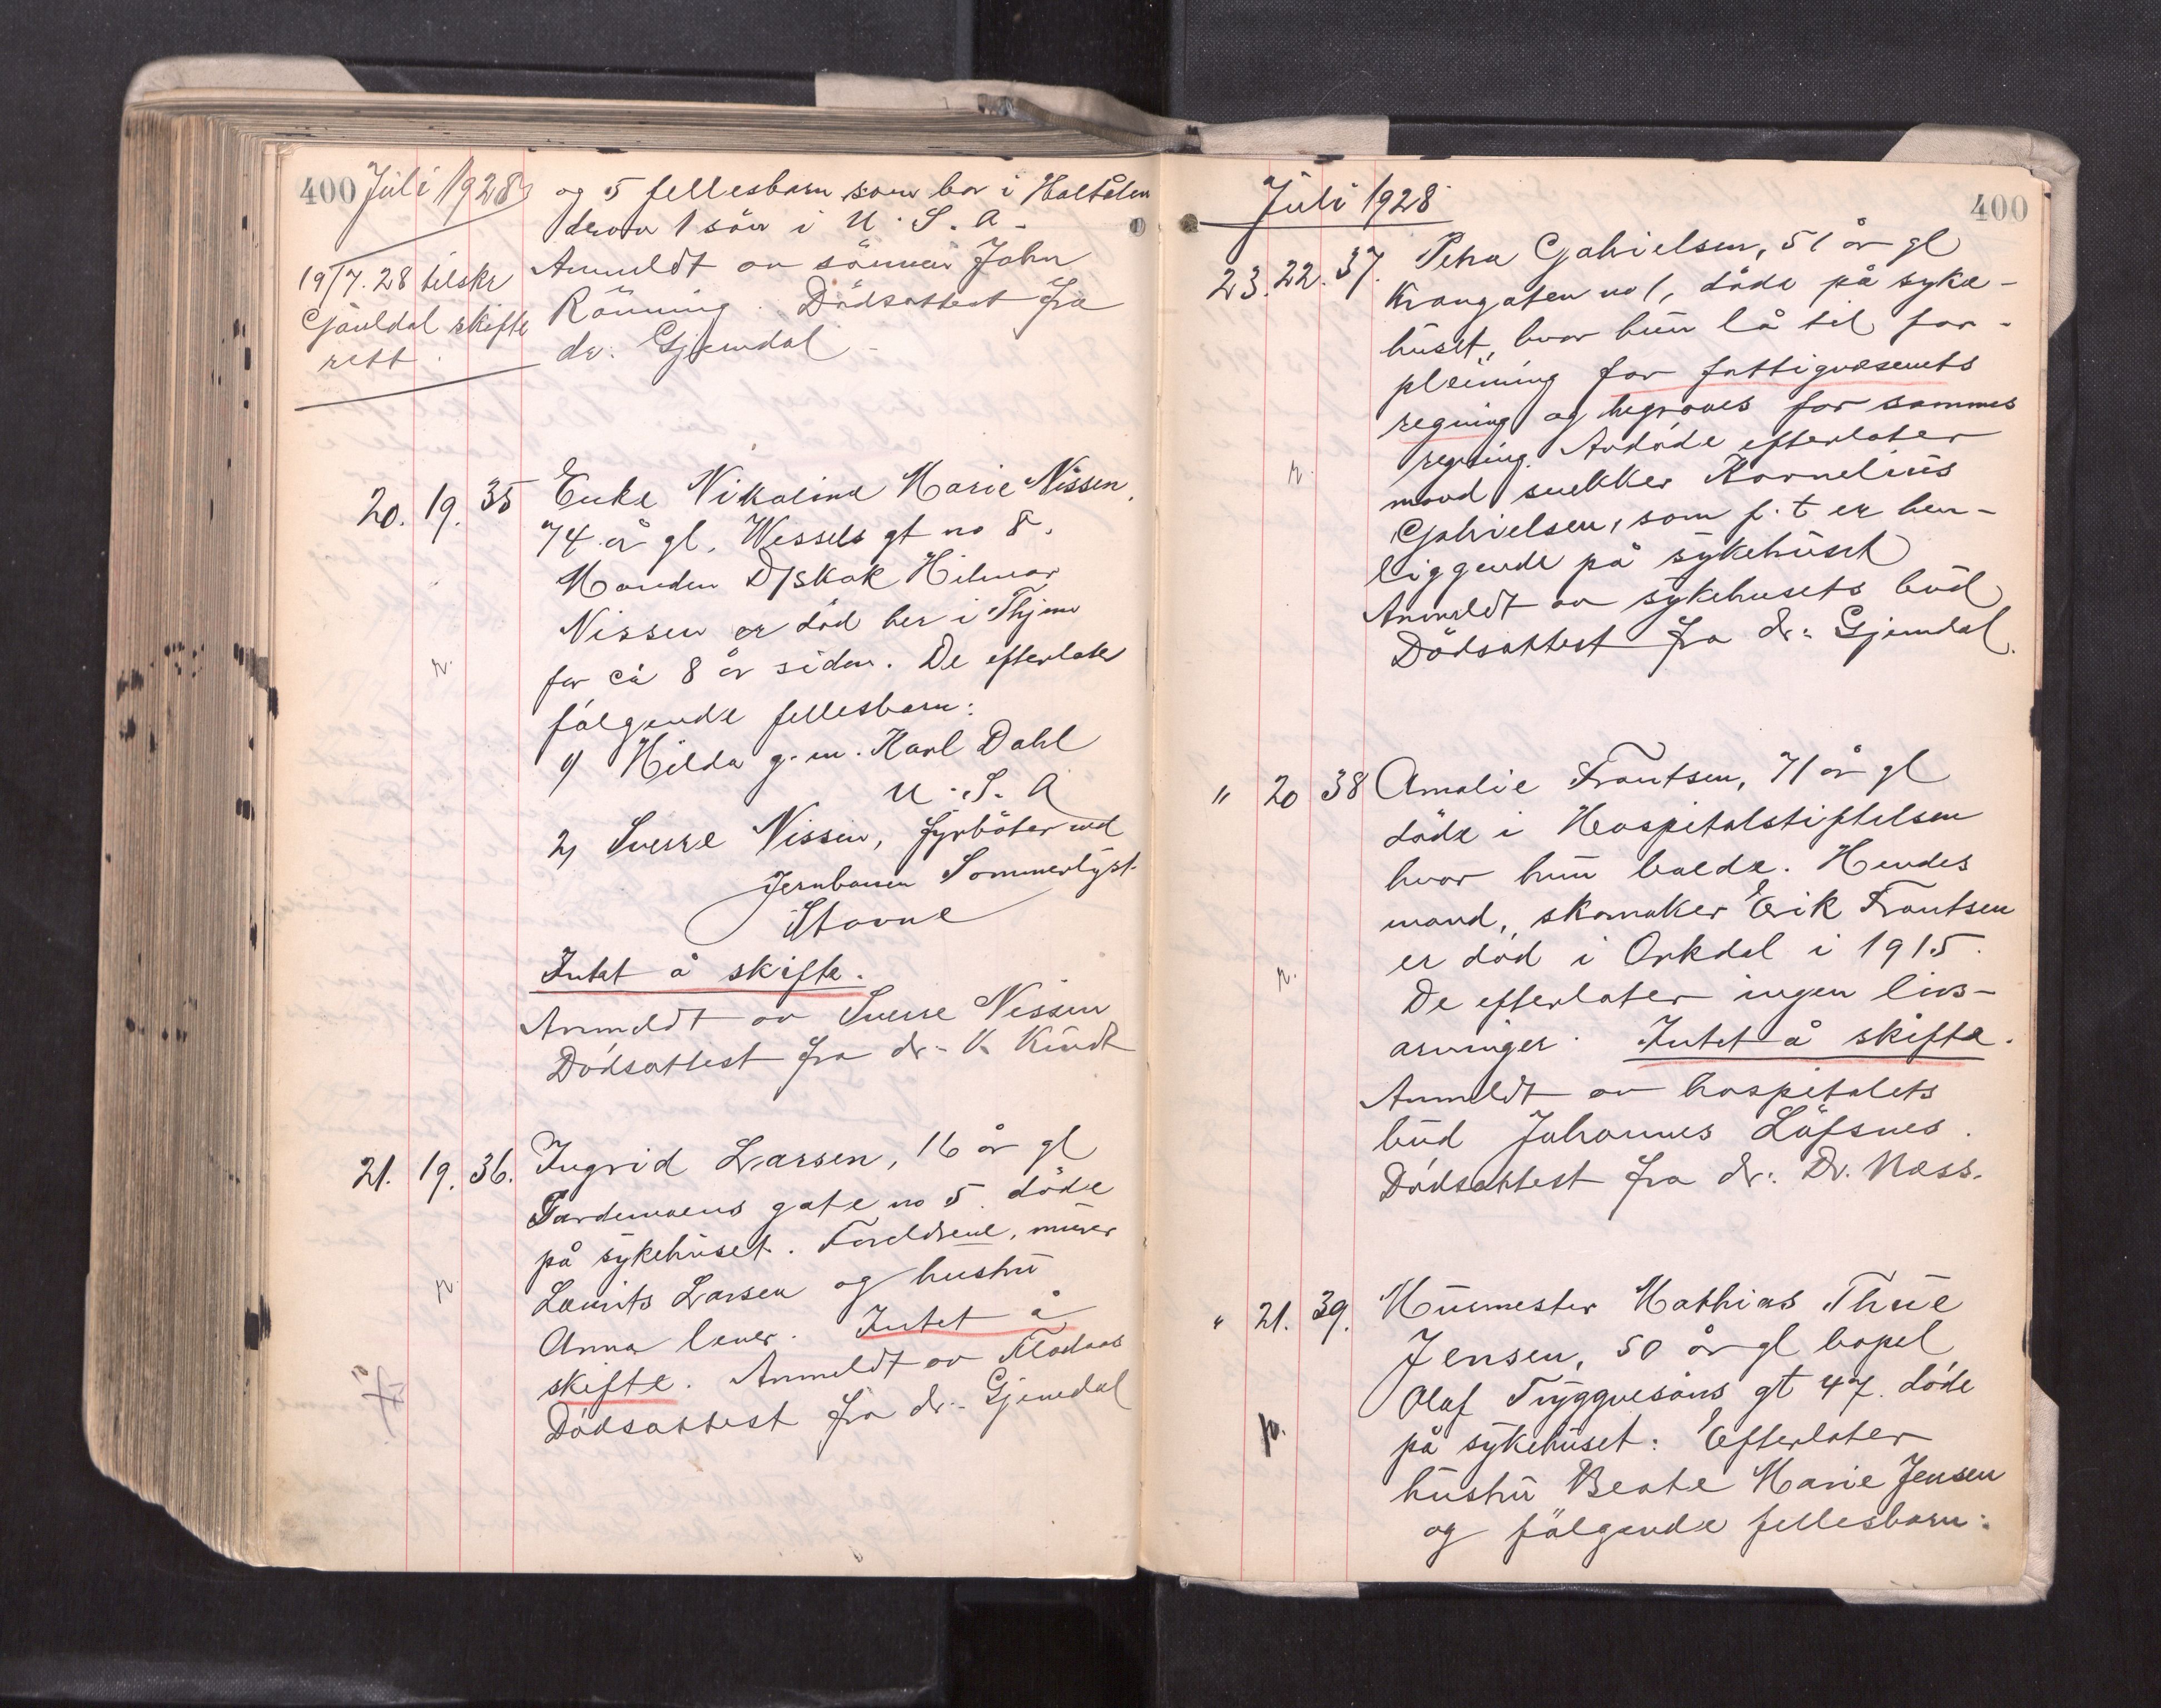 400 Juli 1928
og 5 fellesbarn som bor i Haltdalen
derav 1 sön i U.S.A.
Anmeldt av sönnen John
Rönning. Dödsattest fra
dr. Gjemdal
19/7. 28 tilskr
Gauldal skifte
rett.
20. 19. 35 Enke Nikoline Marie Nissen,
74 år gl. Wessels gt no 8.
Manden D/skak Hilmar
Nissen er död her i Thjem
for ca 8 år siden. De efterlater
fölgende fellesbarn:
1) Hilda g.m. Karl Dahl
U.S.A
2) Sverre Nissen, fyrböter ved
Jernbanen Sommerlyst
Stavne
Intet å skifte.
Anmeldt av Sverre Nissen
Dödsattest fra dr. K Kindt
21. 19. 36. Ingrid Larsen, 16 år gl
gate no 5. döde
på sykehuset. Foreldrene, murer
Laurits Larsen og hustru
Anna lever. Intet å
skifte. Anmeldt av Flataas
Dödsattest fra dr. Gjemdal
Juli 1928
400
23. 22. 37. Petra Gabrielsen, 51 år gl
Krangaten no 1, döde på syke-
huset, hvor hun lå til for-
pleining for fattigvæsenets
regning og begraves for sammes
regning. Avdöde efterlater
mand snekker Kornelius
Gabrielsen, som p.t er hen-
liggende på sykehuset
Anmeldt av sykehusets bud
Dödsattest fra dr: Gjemdal.
" 20 38 Amalie Frantsen, 71 år gl
döde i Hospitalstiftelsen
hvor hun bodde. Hendes
mand, skomaker Erik Frantsen
er död i Orkdal i 1915.
De efterlater ingen livs-
arvinger. Intet å skifte.
Anmeldt av hospitalets
bud Johannes Löfsnes.
Dödsattest fra dr: Dr. Næss.
" 21. 39. Murmester Mathias Thue
Jensen, 50 år gl bopel
Olaf Tryggvesöns gt 47. döde
på sykehuset. Efterlater
hustru Beate Marie Jensen
og fölgende fellesbarn: